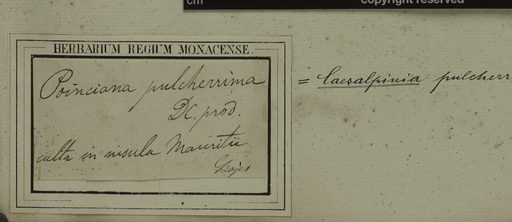 cm copyright reserved
HERBARIUM REGIUM MONACENSE.
Poinciana pulcherrima
DC. prod.
culta in insula Mauritii
= Caesalpinia pulcherr